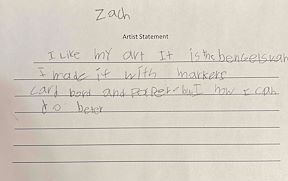 Zach
Artist Statement
I Like my art It is the
I made it with markers
card bord and but I now I can
do beter